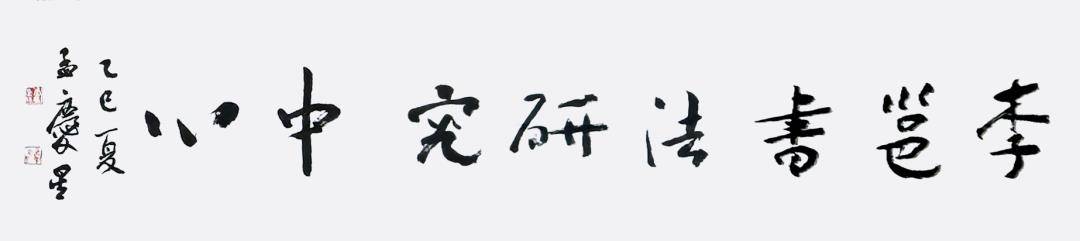 李邕书法研究中心
乙巳夏
孟庆星